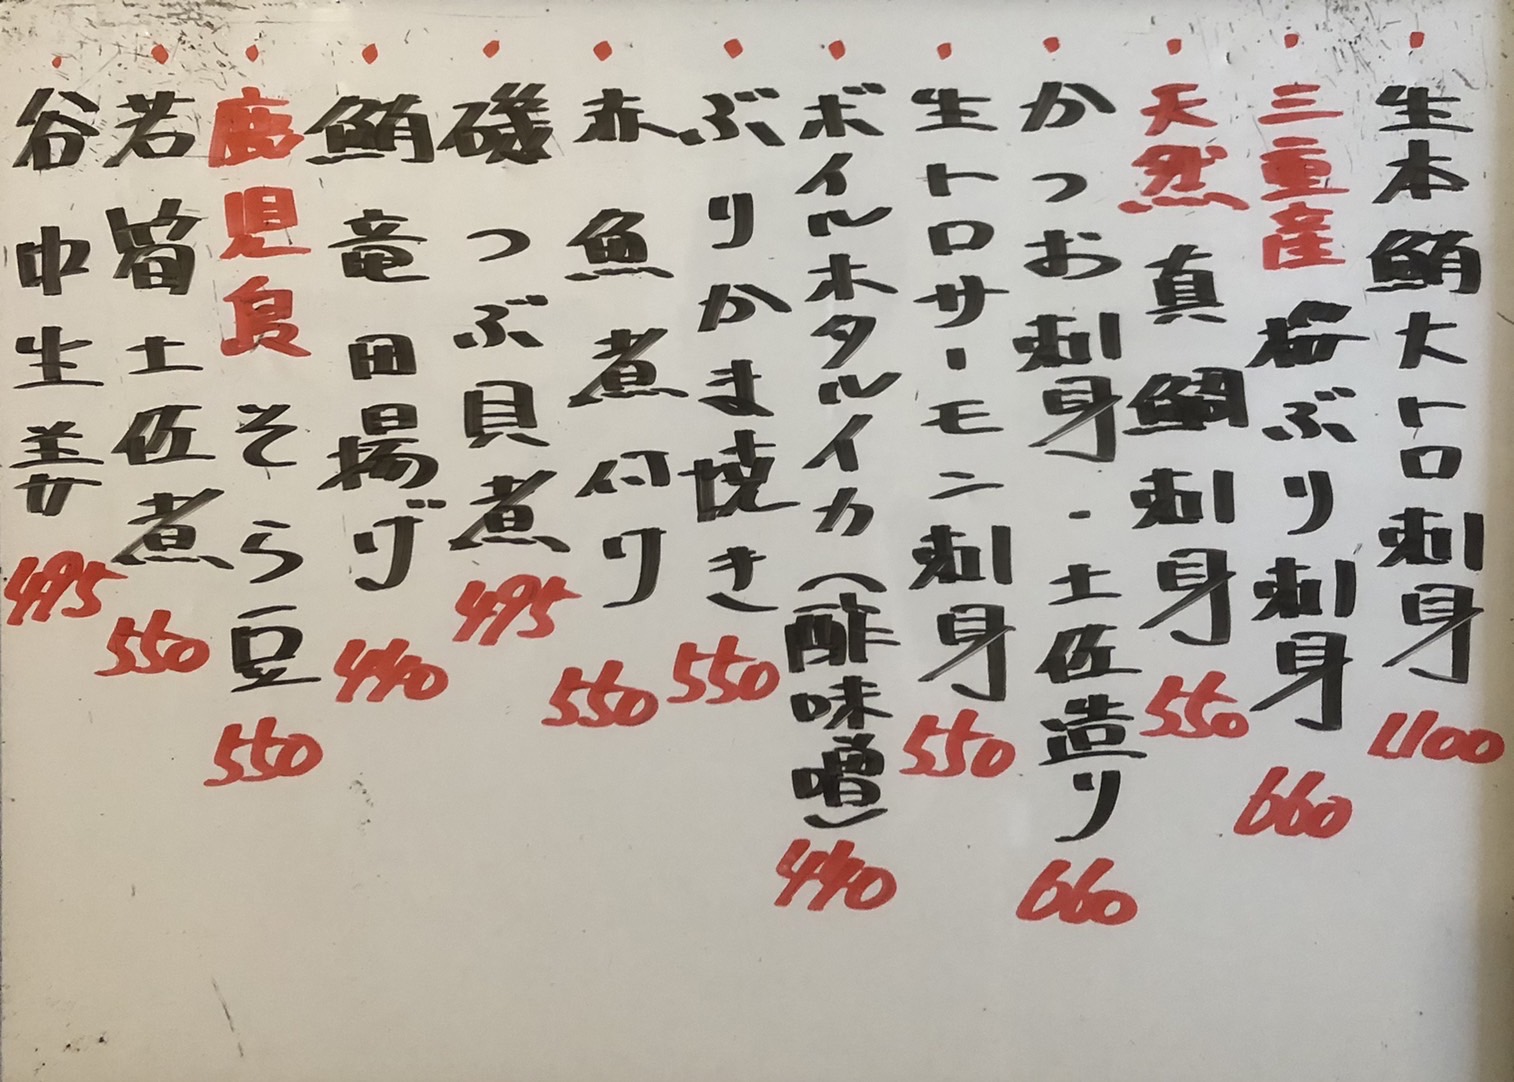 生本鮪大トロ刺身 1100
三重産 桜ぶり刺身 660
天然 真鯛刺身 550
かつお刺身・土佐造り 660
生トロサーモン刺身 550
ボイルホタルイカ(酢味噌) 440
ぶりかま焼き 550
赤魚煮付け 550
磯つぶ貝煮 495
鮪竜田揚げ 440
鹿児島そら豆 550
若筍土佐煮 550
谷中生姜 495